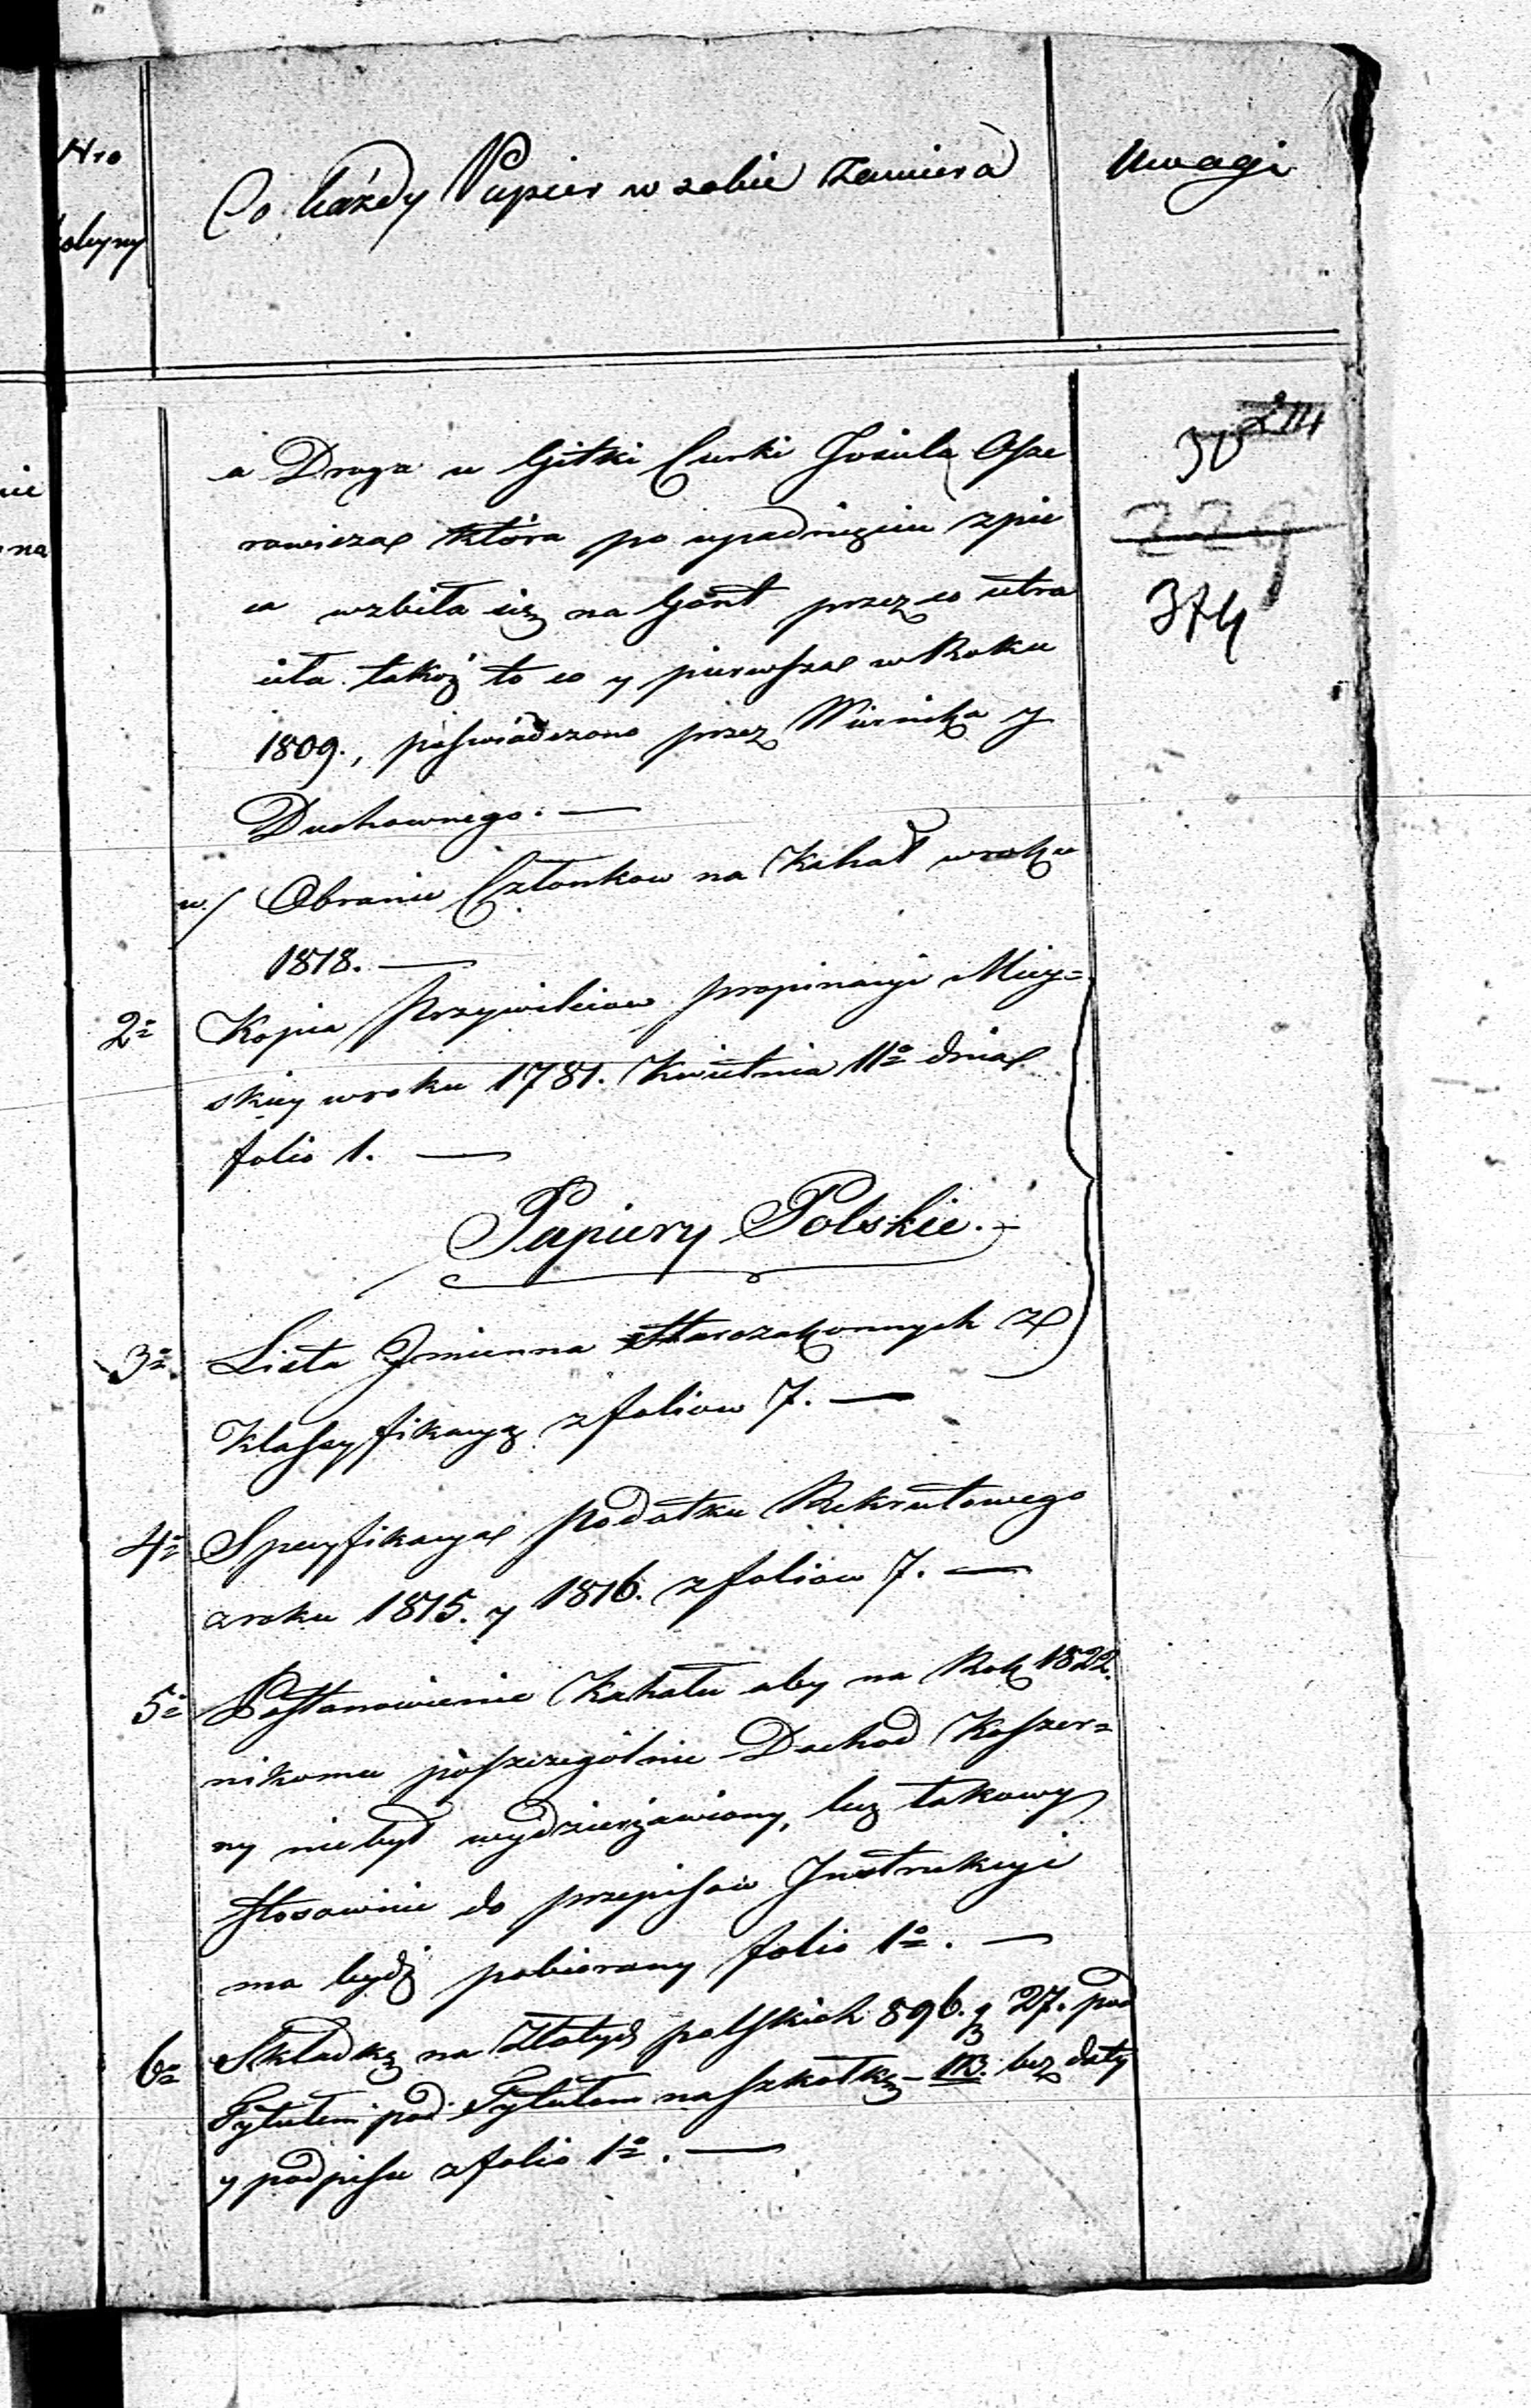 Nro
Co każdy Papier w sobie zamiera
Uwagi
a Druga u Gitki Curki Josiela
rowicza która po upadnięciu z pie
ca wzbiła się na Gont przez co utra
ciła takoż to co y pierwsza w Roku
1809., poświadczono przez Wiernika y
Duchownego. —
w./ Obranie Członkow na Kahał w roku
1818. —
2o Kopia Przywileiow propinacyi Miey=
skiey w roku 1781. Kwietnia 11o dnia
folio 1. —
Papiery Polskie.
3o. Lista Jmienna Starozakonnych z
Klassyfikacyą z foliow 7. —
4o Specyfikacya podatku Rekrutowego
z roku 1815. y 1816. z foliow 7. —
5o Postanowienie Kahału aby na Rok 1822.
nikomu poszczególnie Dochod Koszer=
ny niebył wydzierżawiony, lecz takowy
stosownie do przepisow Instrukcyi
ma bydź pobierany folio 1o. —
6o Składkę na Złotych polskich 896. g 27. pod
Tytułem pod Tytułem na szkołkę – bez daty
y podpisu z folio 1o. —
nie
na
229
374